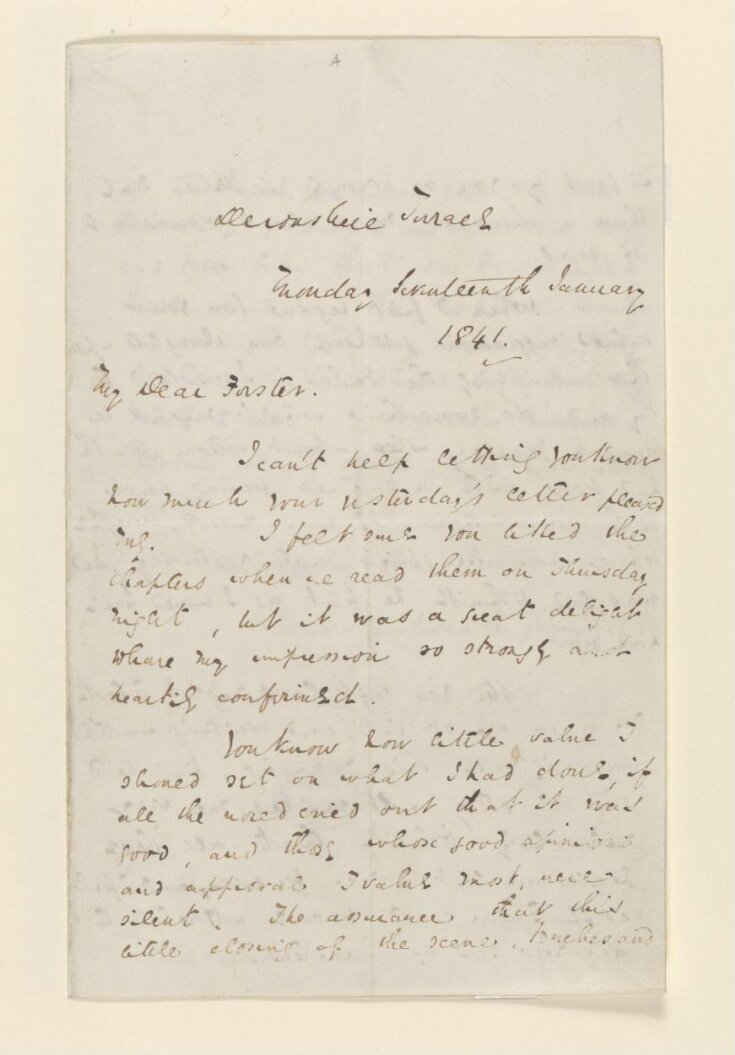 4
Devonshire Terrace
Monday Seventeenth January
1841.
My Dear Forster.
I can't help letting you know
how much your yesterday's letter pleased
me. I felt sure you liked the
chapters when we read them on Thursday
night, but it was a great delight
to have my impression so strongly and
heartily confirmed.
You know how little value I
should set on what I had done, if
all the world cried out that it was
good, and those whose good opinion
and approval I value most, were
silent. The assurance that this
little closing of the scene, touches and